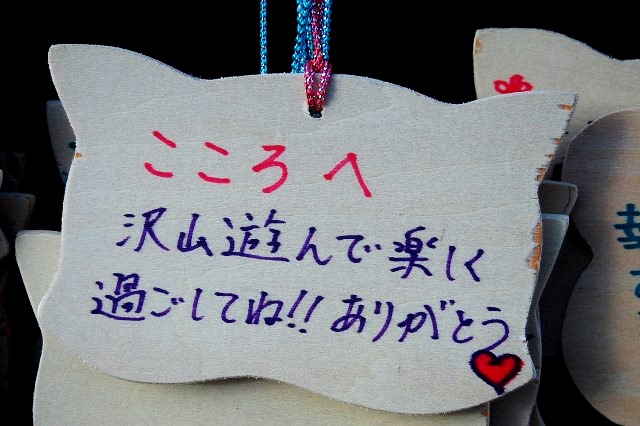 こころへ
沢山遊んで楽しく
過ごしてね!!ありがとう